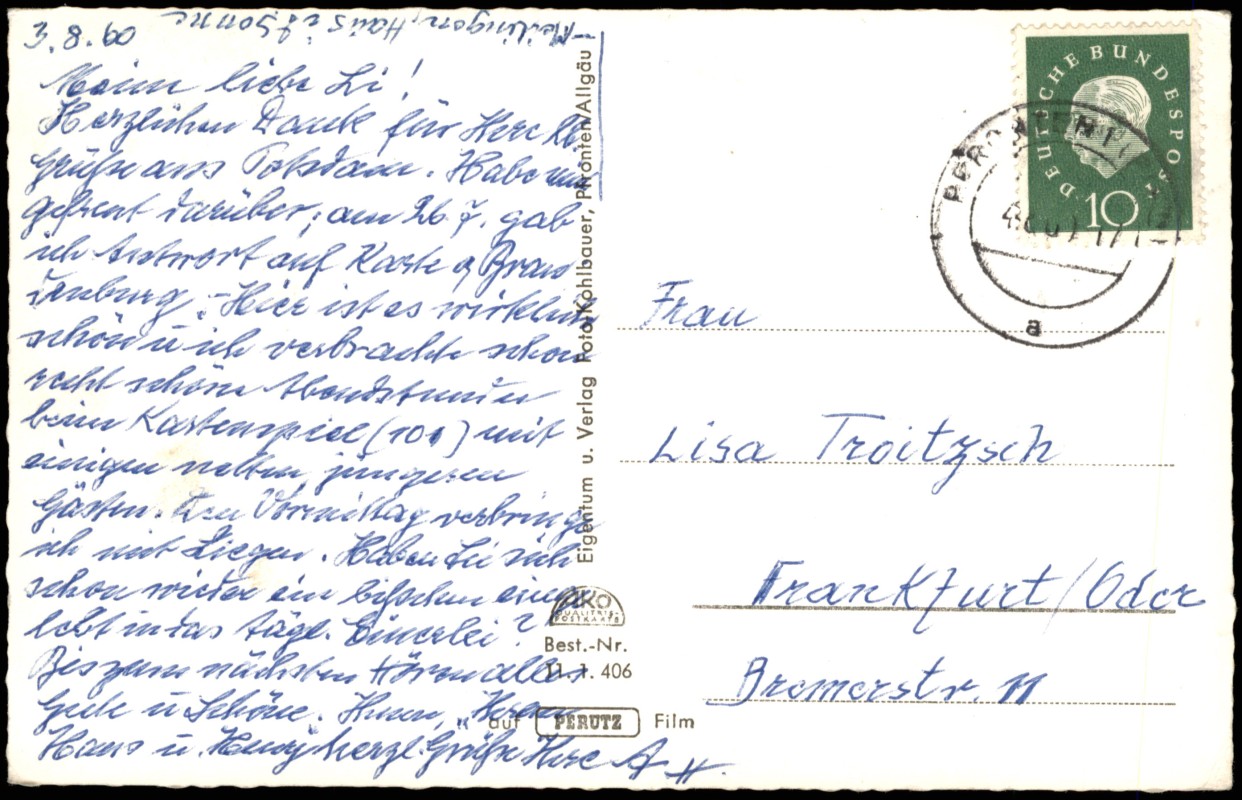 3.8.60
Meilingen, Haus i. d. Sonne
Meine liebe Li!
Herzlichen Dank für Ihre lb.
Grüße aus Potsdam. Habe mich
gefreut darüber; am 26.7. gab
ich Antwort auf Karte a. Bran
denburg. - Hier ist es wirklich
schön u. ich verbrachte schon
recht schöne Abendstunden
beim Kartenspiel (101) mit
einigen netten, jüngeren
Gästen. Den Vormittag verbringe
ich mit Liegen. Haben Sie sich
schon wieder ein bißchen einge
lebt in das tägl. Einerlei?
Bis zum nächsten Hören alles
Gute u. Schöne. Ihnen, Herrn
Hans u. herzl. Grüße Ihre A. H.
Eigentum u. Verlag Foto Kohlbauer, Pfronten/Allgäu
ÄKO
QUALITÄTS-
POSTKARTE
Best.-Nr.
11.1.406
auf PERUTZ Film
DEUTSCHE BUNDESPOST
10
PFRONTEN
a
Frau
Lisa Troitzsch
Frankfurt/Oder
Bremerstr. 11